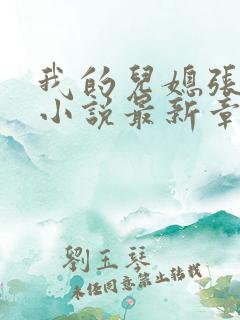 我的兒媳張
小說最新章
劉玉琴
未經同意禁止轉載